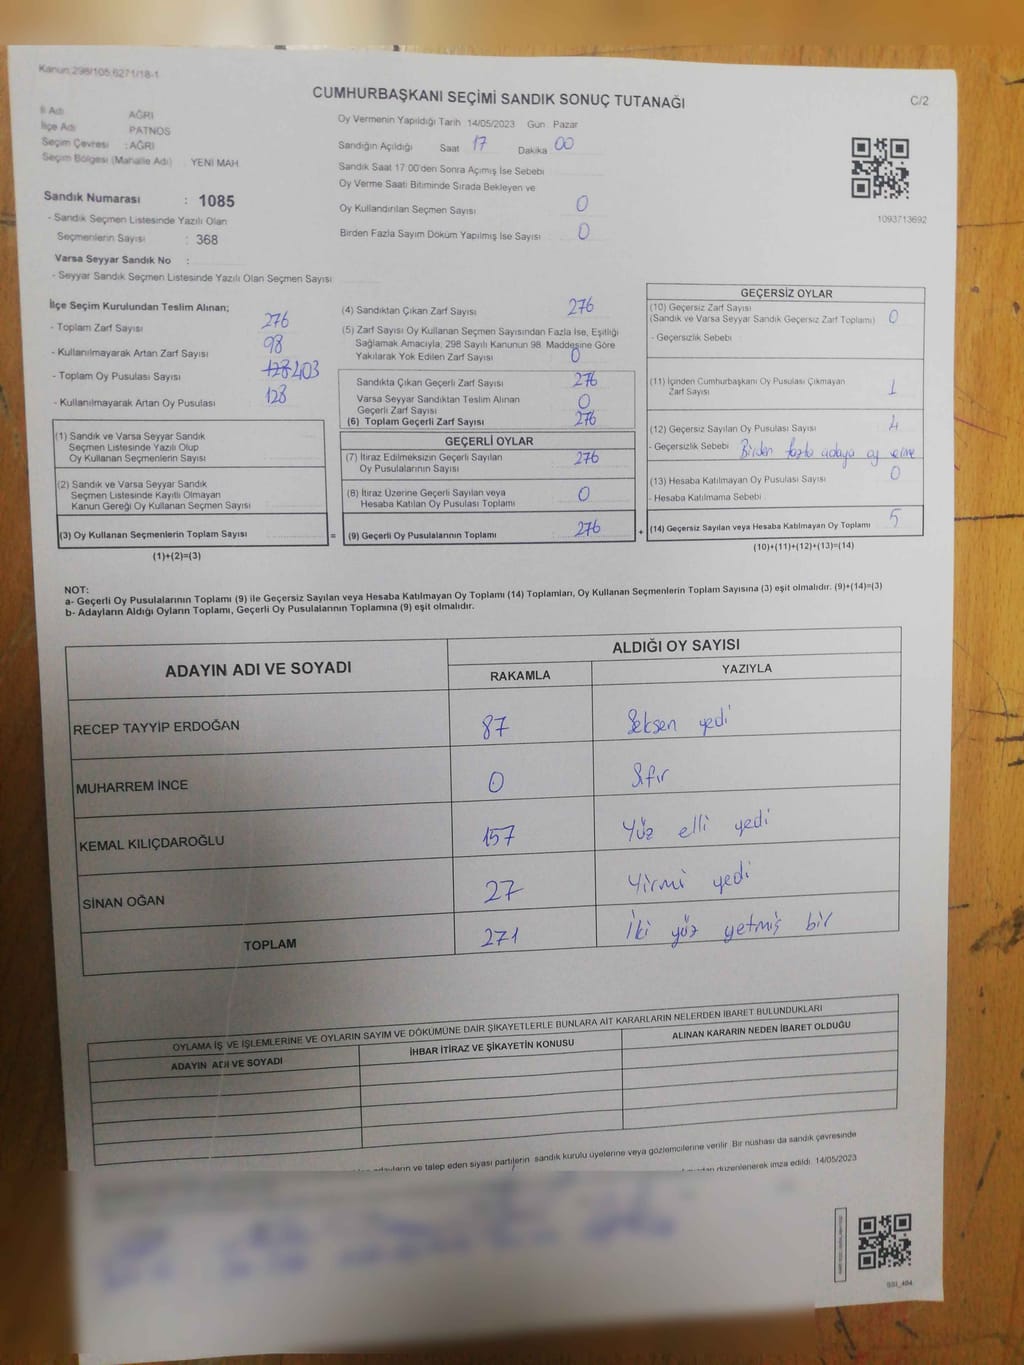 Kanun:298/105,6271/18-1
CUMHURBAŞKANI SEÇİMİ SANDIK SONUÇ TUTANAĞI
C/2
İl Adı AĞRI
İlçe Adı PATNOS
Seçim Çevresi : AĞRI
Seçim Bölgesi (Mahalle Adı) : YENİ MAH
Sandık Numarası : 1085
- Sandık Seçmen Listesinde Yazılı Olan
Seçmenlerin Sayısı : 368
Varsa Seyyar Sandık No :
- Seyyar Sandık Seçmen Listesinde Yazılı Olan Seçmen Sayısı
Oy Vermenin Yapıldığı Tarih 14/05/2023 Gün : Pazar
Sandığın Açıldığı Saat 17 Dakika 00
Sandık Saat 17:00'den Sonra Açımış İse Sebebi
Oy Verme Saati Bitiminde Sırada Bekleyen ve
Oy Kullandırılan Seçmen Sayısı 0
Birden Fazla Sayım Döküm Yapılmış İse Sayısı 0
1093713692
İlçe Seçim Kurulundan Teslim Alınan;
- Toplam Zarf Sayısı 276
- Kullanılmayarak Artan Zarf Sayısı 98
- Toplam Oy Pusulası Sayısı 128 403
- Kullanılmayarak Artan Oy Pusulası 128
(1) Sandık ve Varsa Seyyar Sandık
Seçmen Listesinde Yazılı Olup
Oy Kullanan Seçmenlerin Sayısı
(2) Sandık ve Varsa Seyyar Sandık
Seçmen Listesinde Kayıtlı Olmayan
Kanun Gereği Oy Kullanan Seçmen Sayısı
(3) Oy Kullanan Seçmenlerin Toplam Sayısı =
(1)+(2)=(3)
(4) Sandıktan Çıkan Zarf Sayısı 276
(5) Zarf Sayısı Oy Kullanan Seçmen Sayısından Fazla İse, Eşitliği
Sağlamak Amacıyla, 298 Sayılı Kanunun 98. Maddesine Göre
Yakılarak Yok Edilen Zarf Sayısı 0
Sandıkta Çıkan Geçerli Zarf Sayısı 276
Varsa Seyyar Sandıktan Teslim Alınan
Geçerli Zarf Sayısı 0
(6) Toplam Geçerli Zarf Sayısı 276
GEÇERLİ OYLAR
(7) İtiraz Edilmeksizin Geçerli Sayılan
Oy Pusulalarının Sayısı 276
(8) İtiraz Üzerine Geçerli Sayılan veya
Hesaba Katılan Oy Pusulası Toplamı 0
(9) Geçerli Oy Pusulalarının Toplamı 276 +
GEÇERSİZ OYLAR
(10) Geçersiz Zarf Sayısı
(Sandık ve Varsa Seyyar Sandık Geçersiz Zarf Toplamı) 0
- Geçersizlik Sebebi
(11) İçinden Cumhurbaşkanı Oy Pusulası Çıkmayan
Zarf Sayısı 1
(12) Geçersiz Sayılan Oy Pusulası Sayısı 4
- Geçersizlik Sebebi Birden fazla adaya oy
(13) Hesaba Katılmayan Oy Pusulası Sayısı 0
- Hesaba Katılmama Sebebi
(14) Geçersiz Sayılan veya Hesaba Katılmayan Oy Toplamı 5
(10)+(11)+(12)+(13)=(14)
NOT:
a- Geçerli Oy Pusulalarının Toplamı (9) ile Geçersiz Sayılan veya Hesaba Katılmayan Oy Toplamı (14) Toplamları, Oy Kullanan Seçmenlerin Toplam Sayısına (3) eşit olmalıdır. (9)+(14)=(3)
b- Adayların Aldığı Oyların Toplamı, Geçerli Oy Pusulalarının Toplamına (9) eşit olmalıdır.
ADAYIN ADI VE SOYADI ALDIĞI OY SAYISI
RAKAMLA YAZIYLA
RECEP TAYYİP ERDOĞAN 87 Seksen yedi
MUHARREM İNCE 0 Sıfır
KEMAL KILIÇDAROĞLU 157 Yüz elli yedi
SİNAN OĞAN 27 Yirmi yedi
TOPLAM 271 İki yüz yetmiş bir
OYLAMA İŞ VE İŞLEMLERİNE VE OYLARIN SAYIM VE DÖKÜMÜNE DAİR ŞİKAYETLERLE BUNLARA AİT KARARLARIN NELERDEN İBARET BULUNDUKLARI
ADAYIN ADI VE SOYADI İHBAR İTİRAZ VE ŞİKAYETİN KONUSU ALINAN KARARIN NEDEN İBARET OLDUĞU
adayların ve talep eden siyasi partilerin sandık kurulu üyelerine veya gözlemcilerine verilir. Bir nüshası da sandık çevresinde
düzenlenerek imza edildi. 14/05/2023